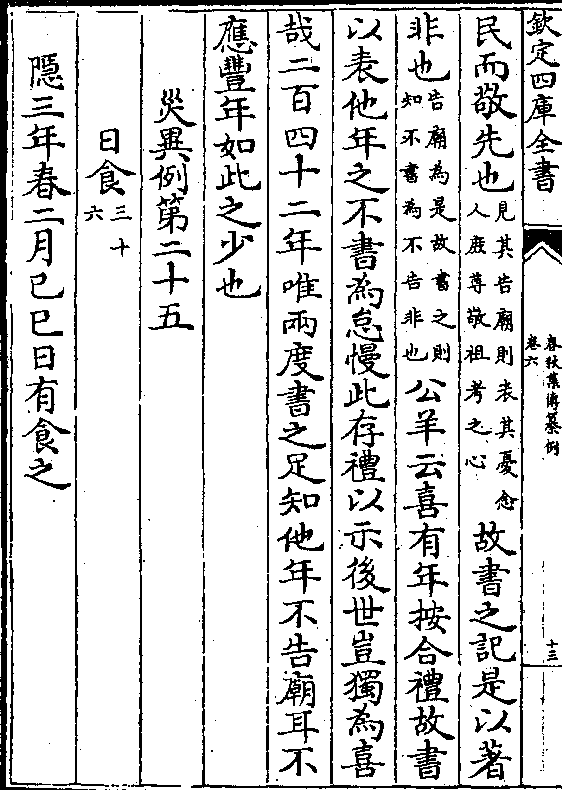 欽定四庫全書
春秋集傳纂例
卷六
十三
民而敬先也見其告廟則表其憂念人庶尊敬祖考之心故書之記是以著
非也告廟為是故書之則知不書為不告非也公羊云喜有年按合禮故書
以表他年之不書為怠慢此存禮以示後世豈獨為喜
哉二百四十二年唯兩度書之足知他年不告廟耳不
應豐年如此之少也
災異例第二十五
日食三十六
隱三年春二月己巳日有食之